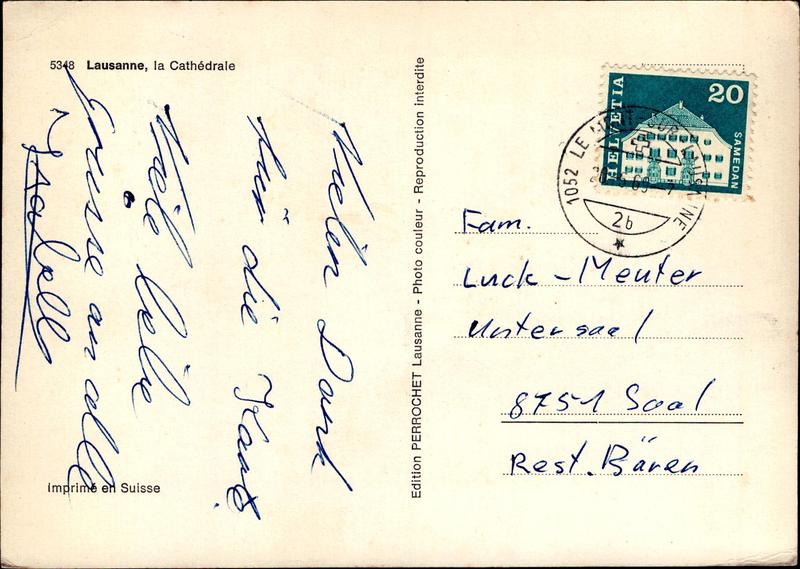 5348 Lausanne, la Cathédrale
Vielen Dank
für die Karte
Viele liebe
Grüsse an alle
Ysabell
Imprimé en Suisse
Edition PERROCHET Lausanne - Photo couleur - Reproduction interdite
HELVETIA
20
SAMEDAN
1052 LE MONT-SUR-LAUSANNE
2b
Fam.
Luck - Meuter
Untersaal
8751 Saal
Rest. Bären